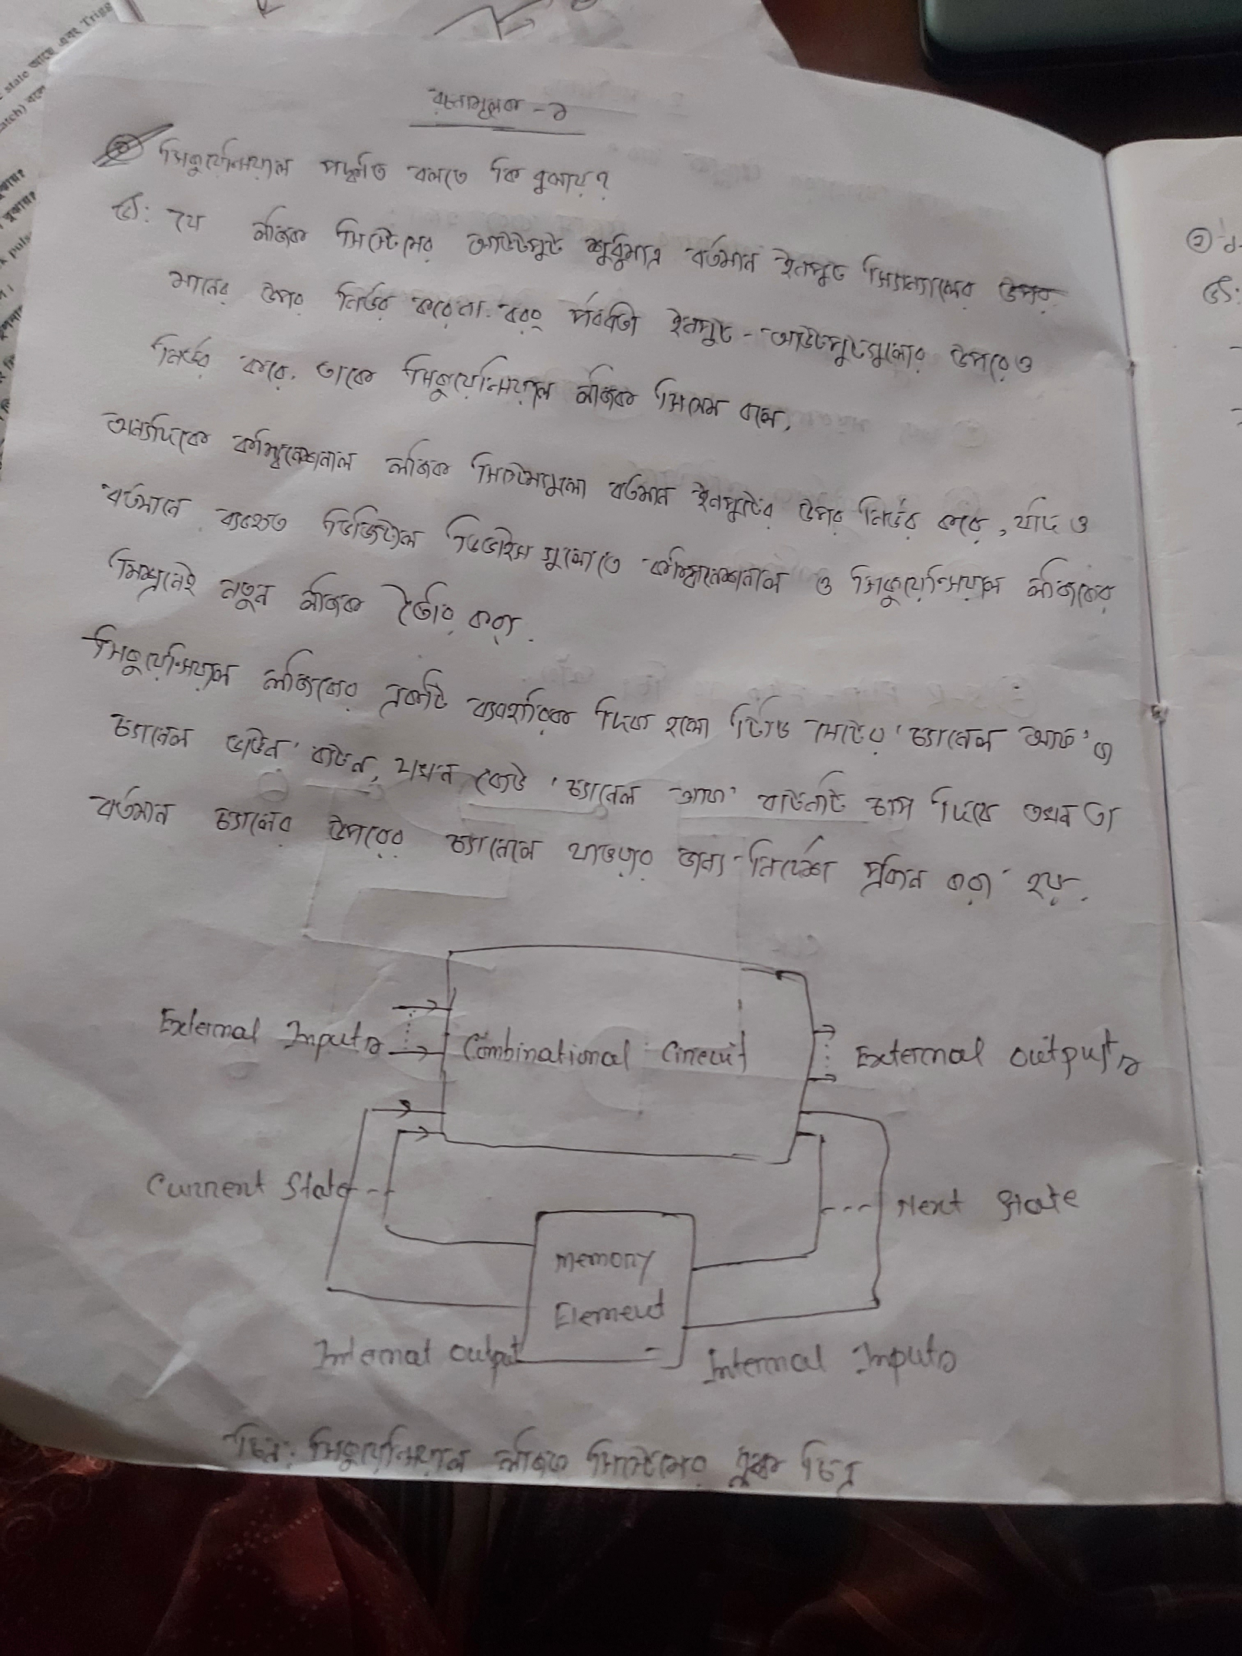 রচনামূলক - ১
সিকুয়েন্সিয়াল পদ্ধতি বলতে কি বুঝায়?
উ: যে লজিক সিস্টেমের আউটপুট শুধুমাত্র বর্তমান ইনপুট সিগন্যালের উপর
মানের উপর নির্ভর করেনা. বরং পূর্ববর্তী ইনপুট - আউটপুটগুলোর উপরেও
নির্ভর করে. তাকে সিকুয়েন্সিয়াল লজিক বলে,
অন্যদিকে কম্বিনেশনাল লজিক সিস্টেমগুলো বর্তমান ইনপুটের উপর নির্ভর করে, যদিও
বর্তমানে ব্যবহৃত ডিজিটাল ডিভাইস গুলোতে কম্বিনেশনাল ও সিকুয়েন্সিয়াল লজিকের
মিশ্রনেই নতুন লজিক তৈরি করা.
সিকুয়েন্সিয়াল লজিকের একটি ব্যবহারিক দিক হলো টিভি সেটের 'চ্যানেল আফ' ও
চ্যানেল ডাউন' বাটন, যখন কেউ 'চ্যানেল আফ' বাটনটি চাপ দিবে তখন তা
বর্তমান চ্যানের উপরের চ্যানেলে যাওয়ার জন্য নির্দেশ প্রদান করা হয়.
External Inputs
Combinational Circuit
External outputs
Current State
Next State
Memory
Element
Internal output
Internal Inputs
চিত্র: সিকুয়েন্সিয়াল লজিক সিস্টেমের ব্লক চিত্র
②
উ:
state
এবং Trigg